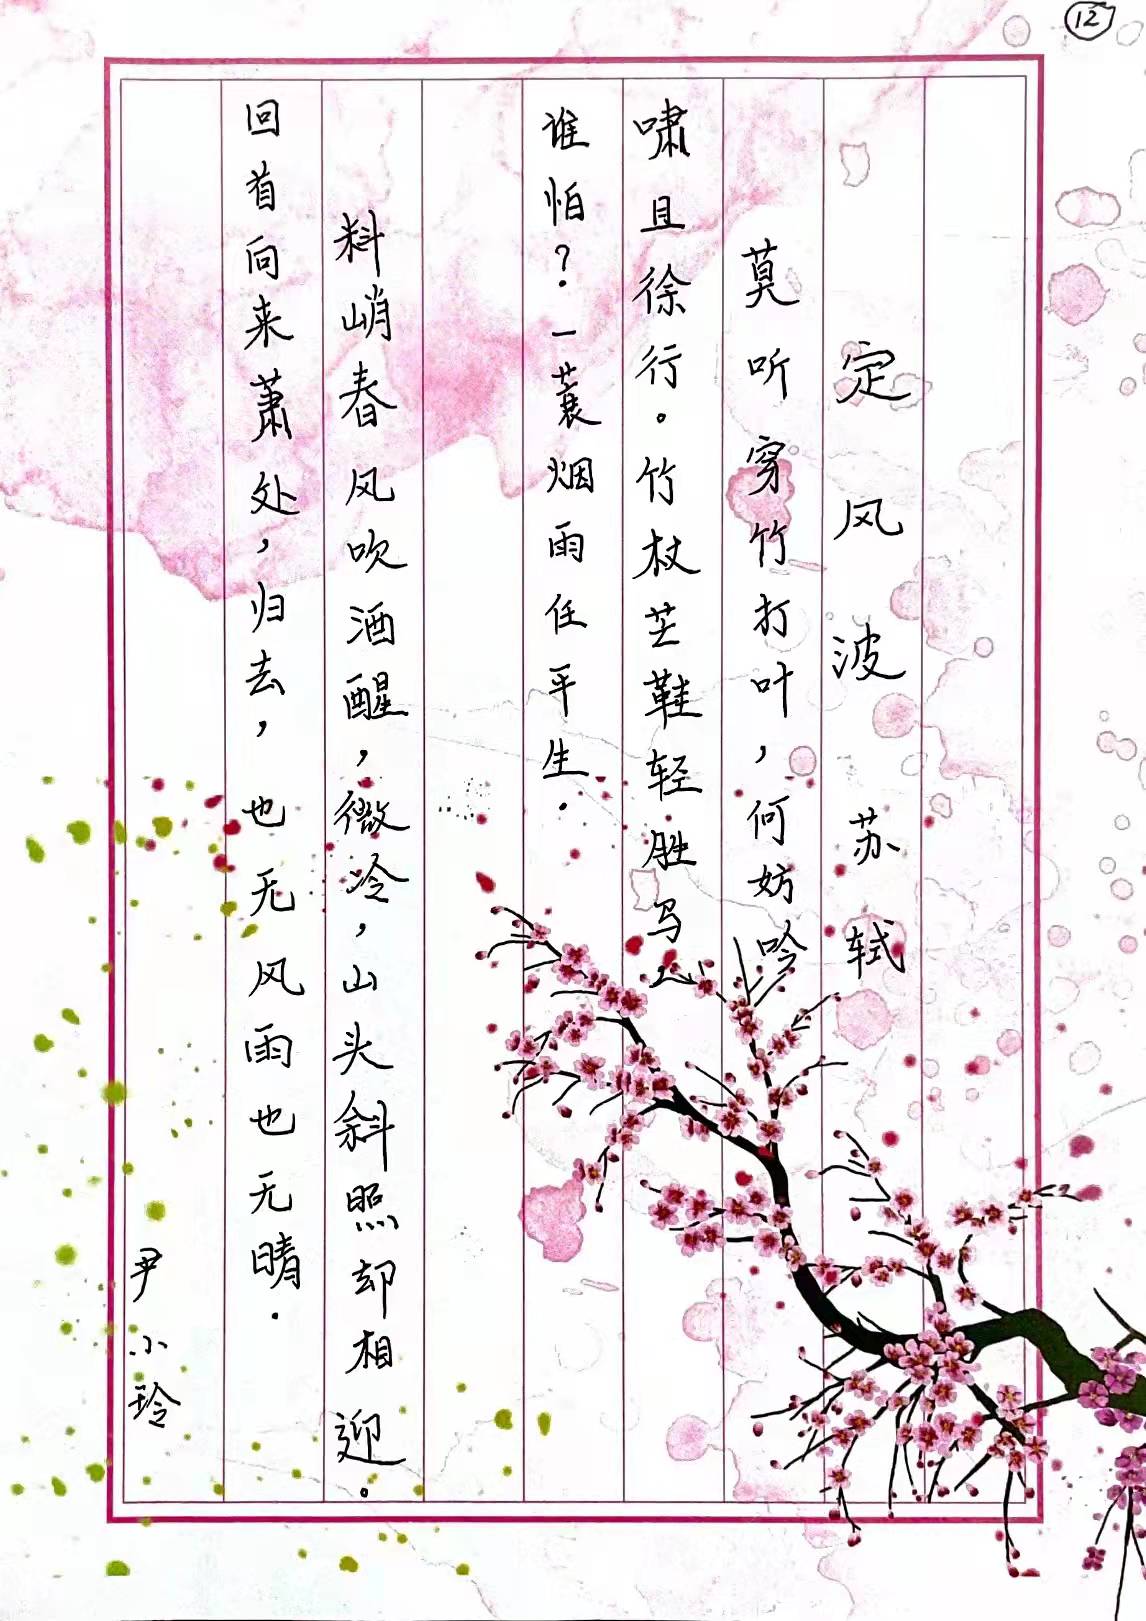 ⑫
定风波 苏轼
莫听穿竹打叶，何妨吟
啸且徐行。竹杖芒鞋轻胜马
谁怕？一蓑烟雨任平生.
料峭春风吹酒醒，微冷，山头斜照却相迎。
回首向来萧处，归去，也无风雨也无晴.
尹小玲